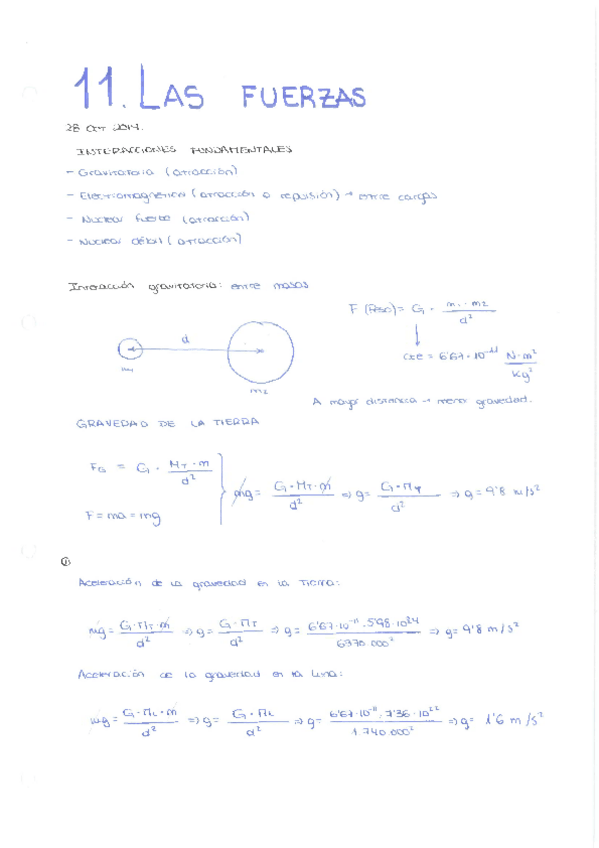 11. LAS FUERZAS
28 Oct 2014.
INTERACCIONES FUNDAMENTALES
- Gravitatoria (atracción)
- Electromagnética (atracción o repulsión) → entre cargas
- Nuclear fuerte (atracción)
- Nuclear débil (atracción)
Interacción gravitatoria: entre masas
F (Peso) = G · m₁ · m₂ / d²
d
cte = 6'67 · 10⁻¹¹ N · m² / Kg²
m₂
A mayor distancia → menor gravedad.
GRAVEDAD DE LA TIERRA
F_G = G · M_T · m / d²
mg = G · M_T · m / d² ⇒ g = G · M_T / d² ⇒ g = 9'8 m/s²
F = ma = mg
①
Aceleración de la gravedad en la Tierra:
mg = G · M_T · m / d² ⇒ g = G · M_T / d² ⇒ g = 6'67 · 10⁻¹¹ · 5'98 · 10²⁴ / 6370.000² ⇒ g = 9'8 m/s²
Aceleración de la gravedad en la Luna:
mg = G · M_L · m / d² ⇒ g = G · M_L / d² ⇒ g = 6'67 · 10⁻¹¹ · 7'36 · 10²² / 1.740.000² ⇒ g = 1'6 m/s²